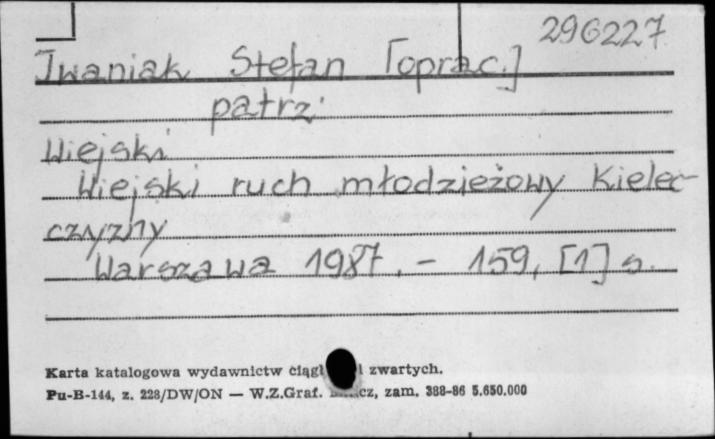 296227
Iwaniak Stefan [oprac.]
patrz:
Wiejski
Wiejski ruch młodzieżowy Kielec-
czyzny
Warszawa 1987. - 159, [1] s.
Karta katalogowa wydawnictw zwartych.
Pu-B-144, z. 228/DW/ON — W.Z.Graf. zam. 388-86 5.650.000